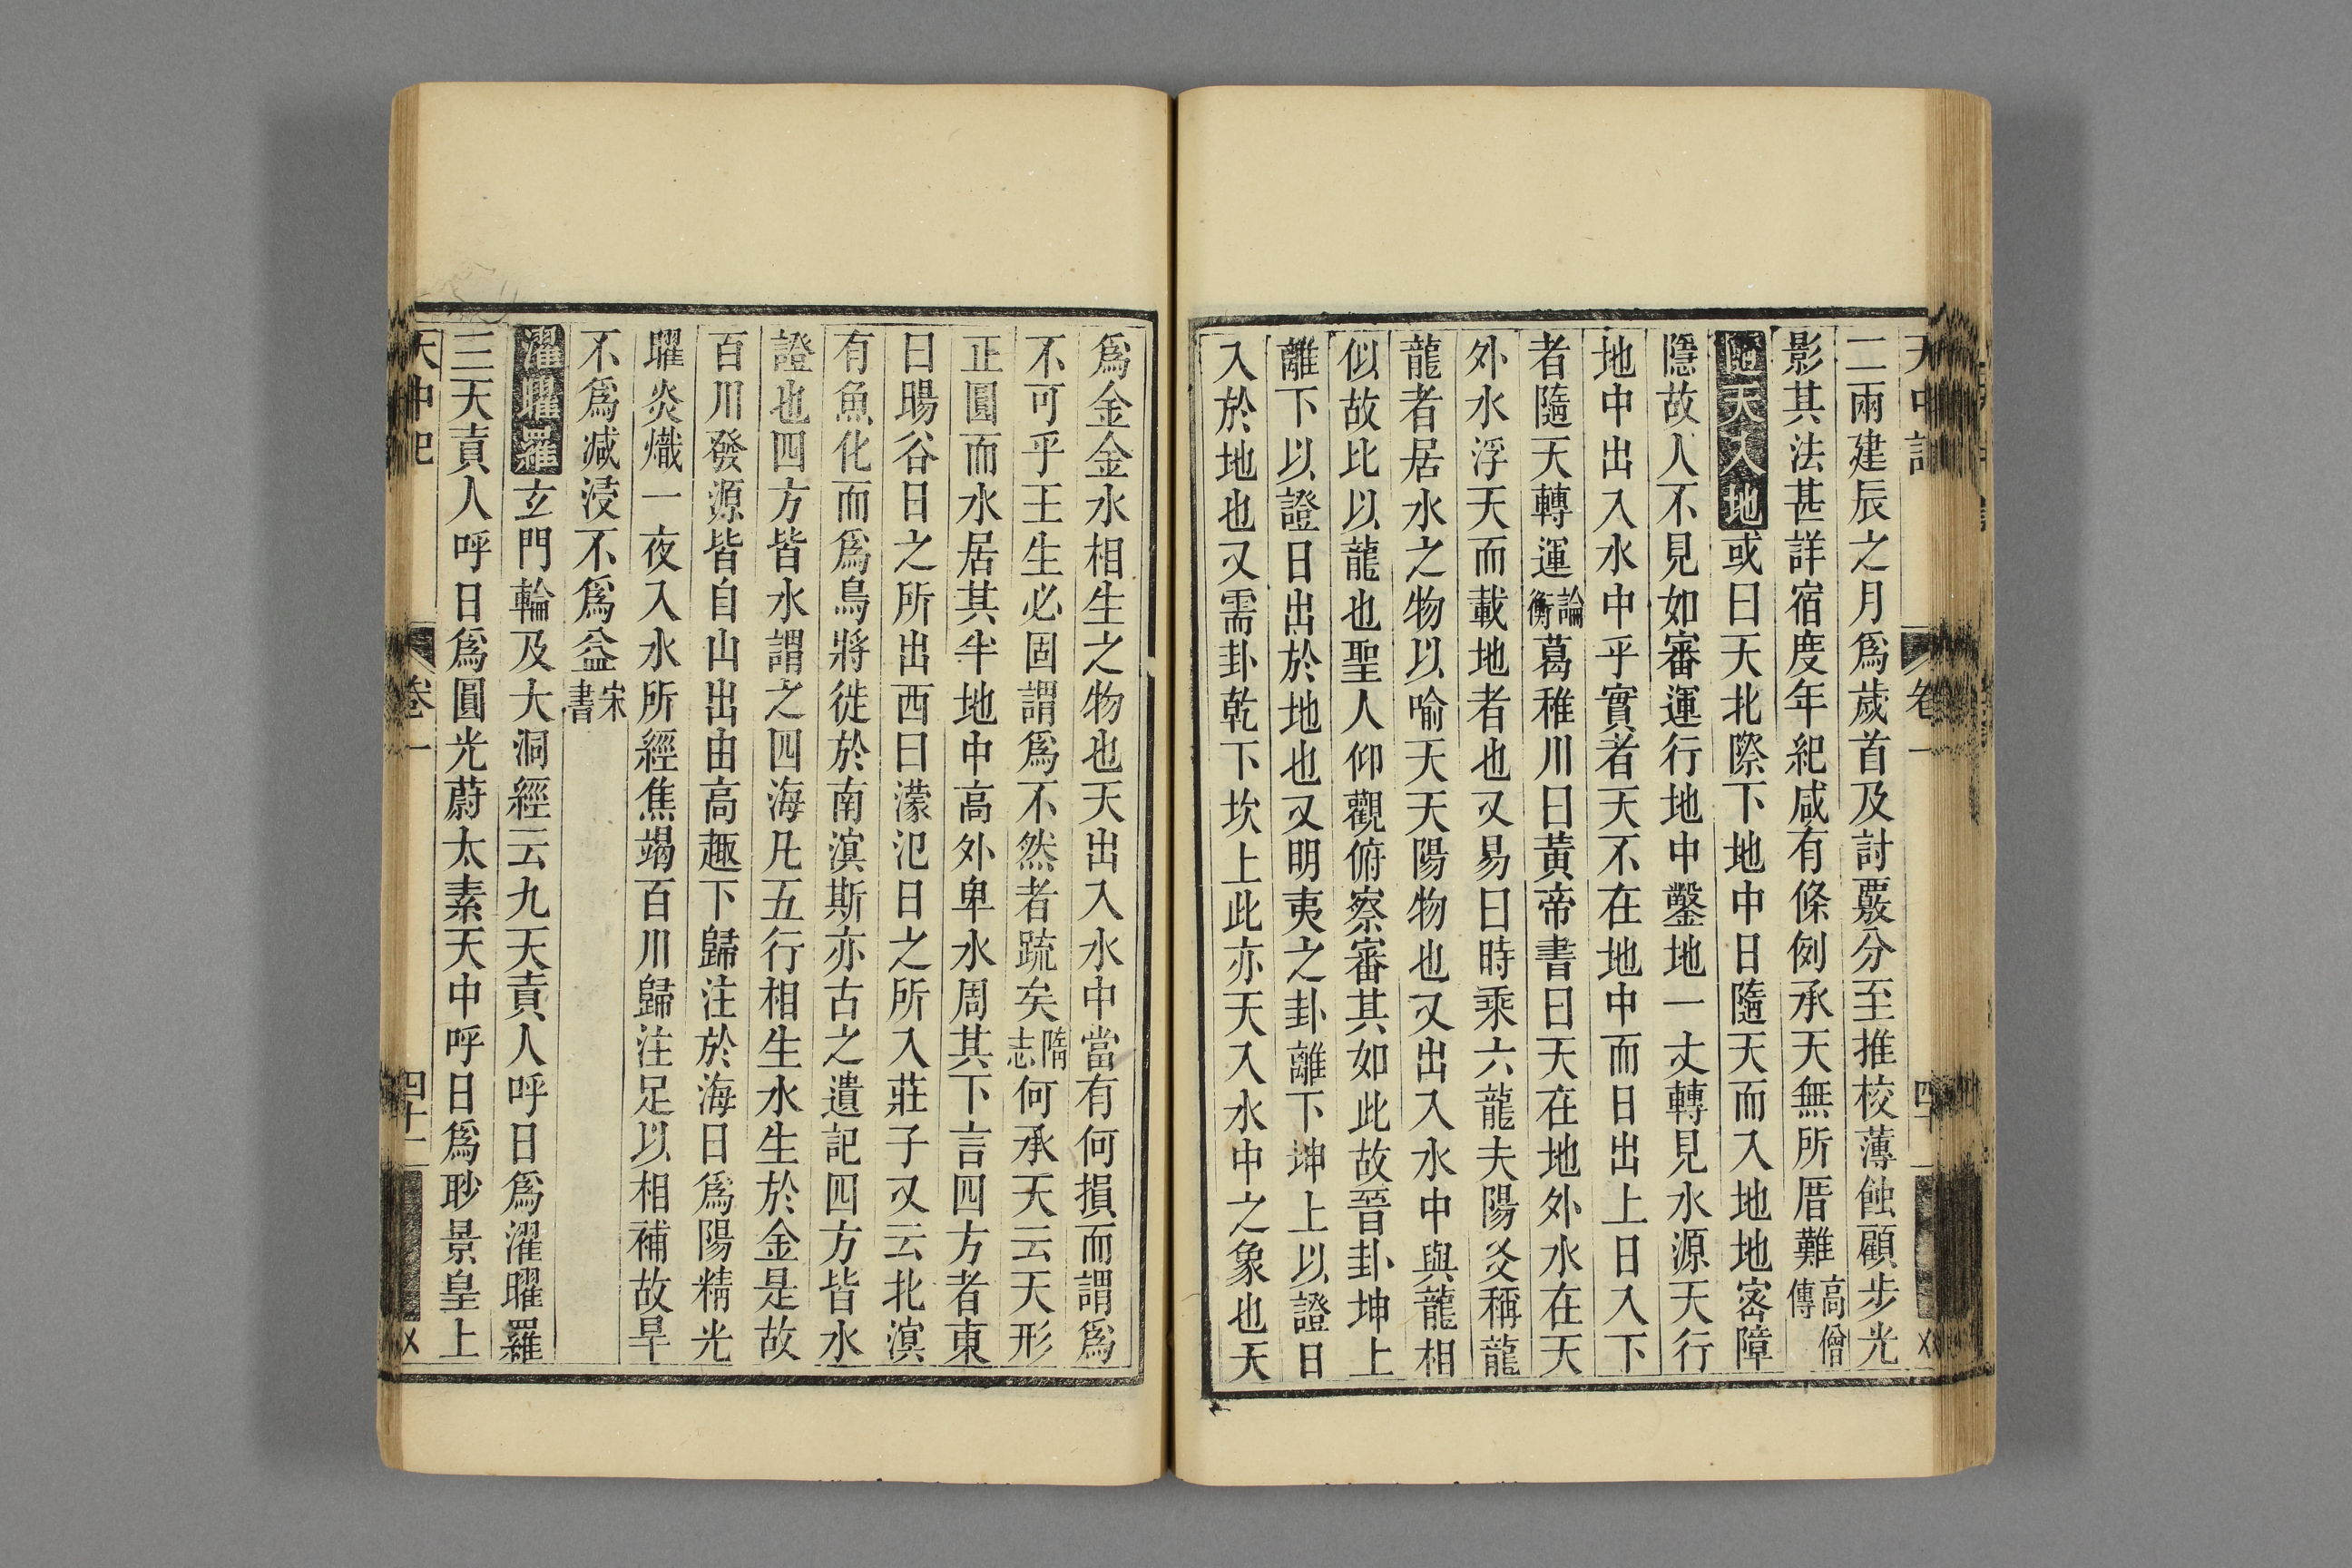 天中記 卷一 四十
二兩建辰之月爲歲首及討覈分至推校薄蝕顧步光
影其法甚詳宿度年紀咸有條例承天無所厝難高僧傳
隨天入地或曰天北際下地中日隨天而入地地密障
隱故人不見如審運行地中鑿地一丈轉見水源天行
地中出入水中乎實者天不在地中而日出上日入下
者隨天轉運論衡葛稚川曰黃帝書曰天在地外水在天
外水浮天而載地者也又易曰時乘六龍夫陽爻稱龍
龍者居水之物以喻天天陽物也又出入水中與龍相
似故比以龍也聖人仰觀俯察審其如此故晉卦坤上
離下以證日出於地也又明夷之卦離下坤上以證日
入於地也又需卦乾下坎上此亦天入水中之象也天
爲金金水相生之物也天出入水中當有何損而謂爲
不可乎王生必固謂爲不然者疏矣隋志何承天云天形
正圓而水居其半地中高外卑水周其下言四方者東
曰暘谷日之所出西曰濛汜日之所入莊子又云北溟
有魚化而爲鳥將徙於南溟斯亦古之遺記四方皆水
證也四方皆水謂之四海凡五行相生水生於金是故
百川發源皆自山出由高趣下歸注於海日爲陽精光
曜炎熾一夜入水所經焦竭百川歸注足以相補故旱
不爲減浸不爲益宋書
濯曜羅玄門輪及大洞經云九天眞人呼日爲濯曜羅
三天眞人呼日爲圓光蔚太素天中呼日爲眇景皇上
天中記 卷一 四十一